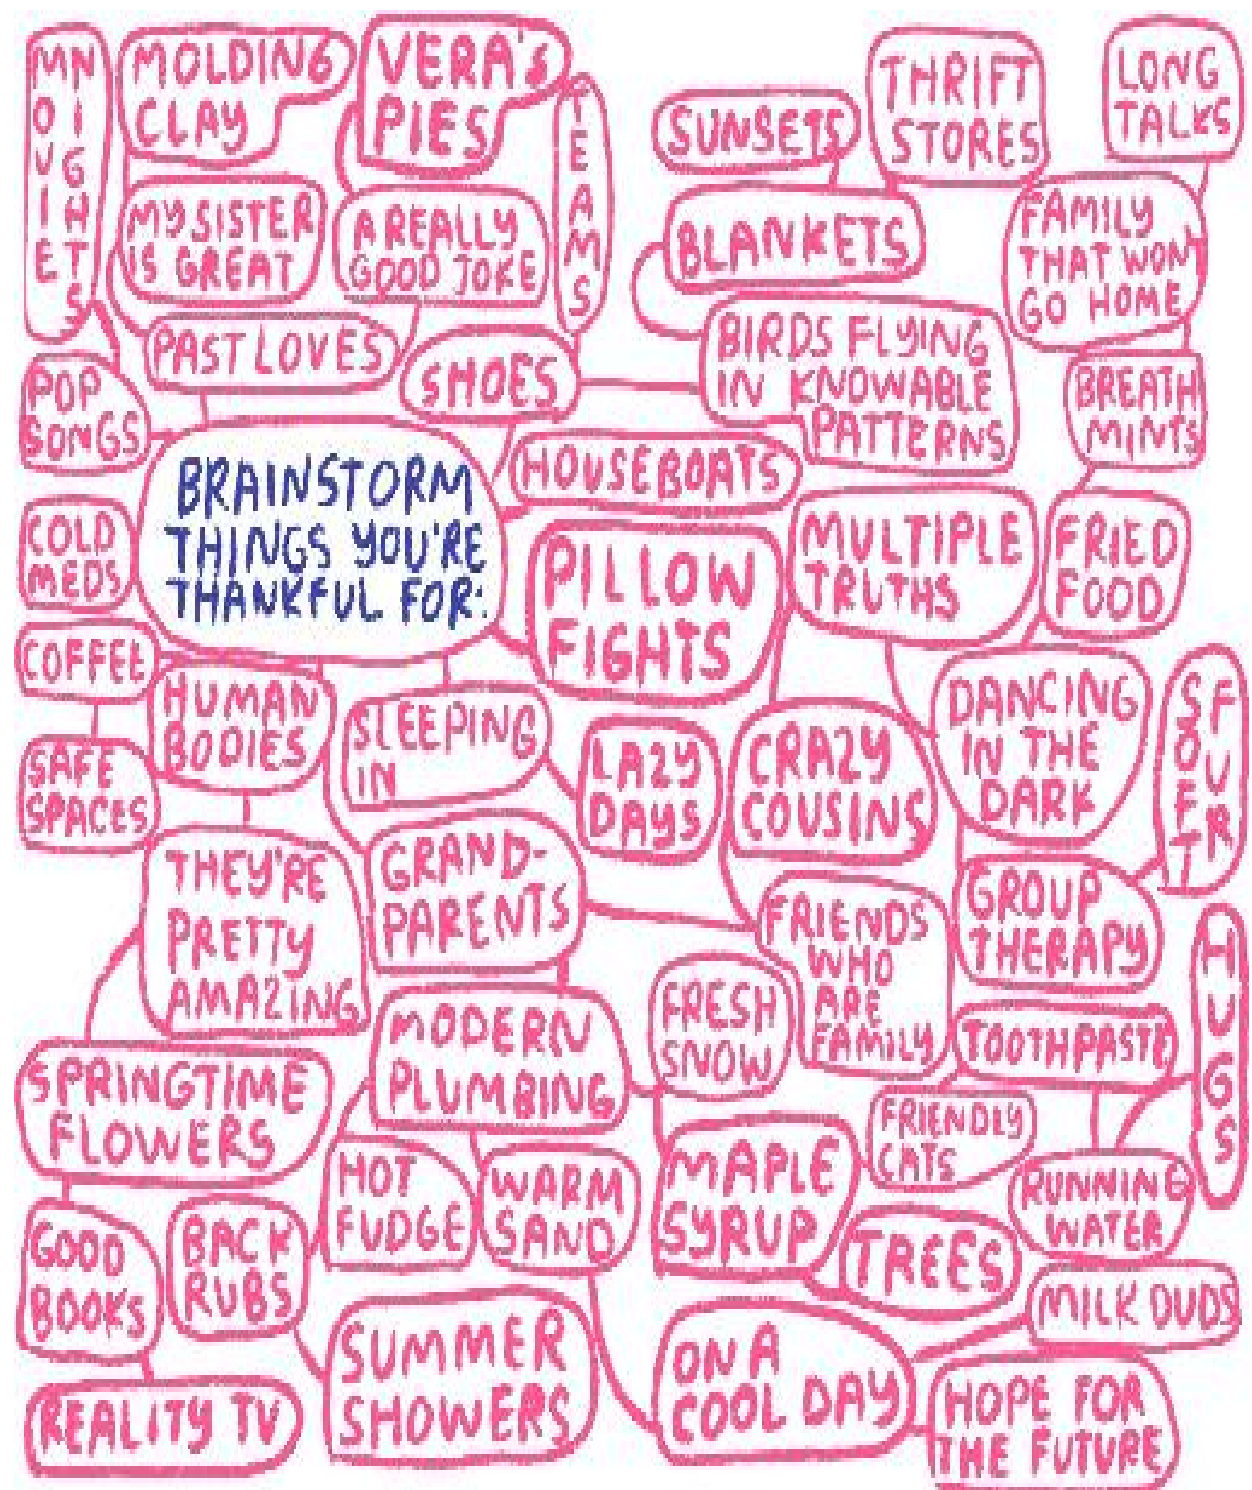 MOVIE
NIGHTS
MOLDING
CLAY
VERA'S
PIES
TEAMS
SUNSETS
THRIFT
STORES
LONG
TALKS
MY SISTER
IS GREAT
A REALLY
GOOD JOKE
BLANKETS
FAMILY
THAT WON'T
GO HOME
PAST LOVES
SHOES
BIRDS FLYING
IN KNOWABLE
PATTERNS
BREATH
MINTS
POP
SONGS
BRAINSTORM
THINGS YOU'RE
THANKFUL FOR:
HOUSEBOATS
COLD
MEDS
PILLOW
FIGHTS
MULTIPLE
TRUTHS
FRIED
FOOD
COFFEE
HUMAN
BODIES
SLEEPING
IN
LAZY
DAYS
CRAZY
COUSINS
DANCING
IN THE
DARK
SOFT
FUR
SAFE
SPACES
THEY'RE
PRETTY
AMAZING
GRAND-
PARENTS
FRIENDS
WHO
ARE
FAMILY
GROUP
THERAPY
HUGS
FRESH
SNOW
MODERN
PLUMBING
TOOTHPASTE
SPRINGTIME
FLOWERS
FRIENDLY
CATS
HOT
FUDGE
WARM
SAND
MAPLE
SYRUP
RUNNING
WATER
GOOD
BOOKS
BACK
RUBS
TREES
MILK DUDS
SUMMER
SHOWERS
ON A
COOL DAY
REALITY TV
HOPE FOR
THE FUTURE